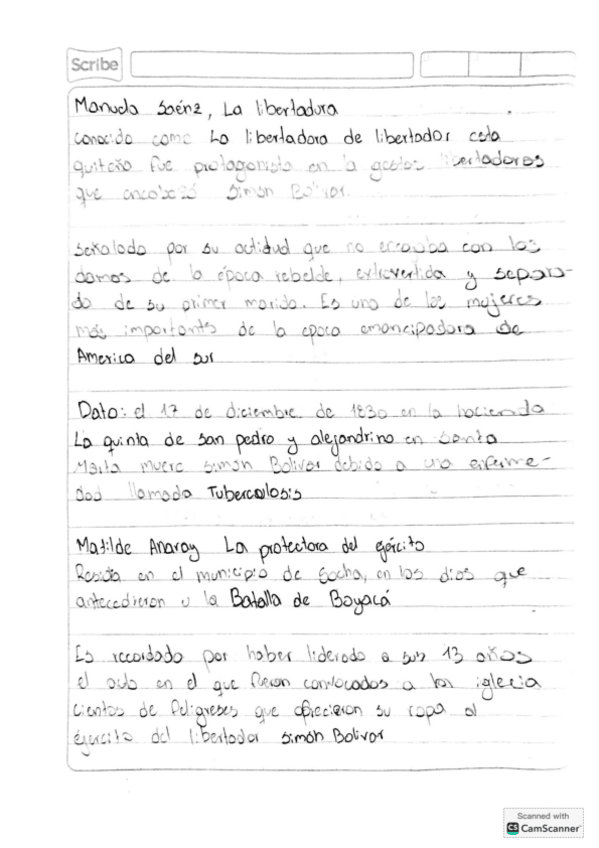 Scribe
Manuela Saénz, La libertadura
conocida como La libertadora de libertador esta
quiteña fue protagonista en la gestas libertadoras
que encabezó Simón Bolívar.
Señalada por su actidud que no encajaba con las
damas de la época rebelde, extrovertida y separa-
da de su primer marido. Es una de las mujeres
más importants de la epoca emancipadora de
America del sur
Dato: el 17 de diciembre de 1830 en la hacienda
La quinta de san pedro y alejandrino en Santa
Marta muere simón Bolivar debido a una enferme-
dad llamada Tuberculosis
Matilde Anaray La protectora del ejército
Residia en el municipio de Socha, en los dias que
antecedieron a la Batalla de Boyacá
Es recordada por haber liderado a sus 13 años
el acto en el que fueron convocados a la iglecia
cientos de feligreses que ofrecieron su ropa al
éjercito del libertador simón Bolivar
Scanned with
CS CamScanner